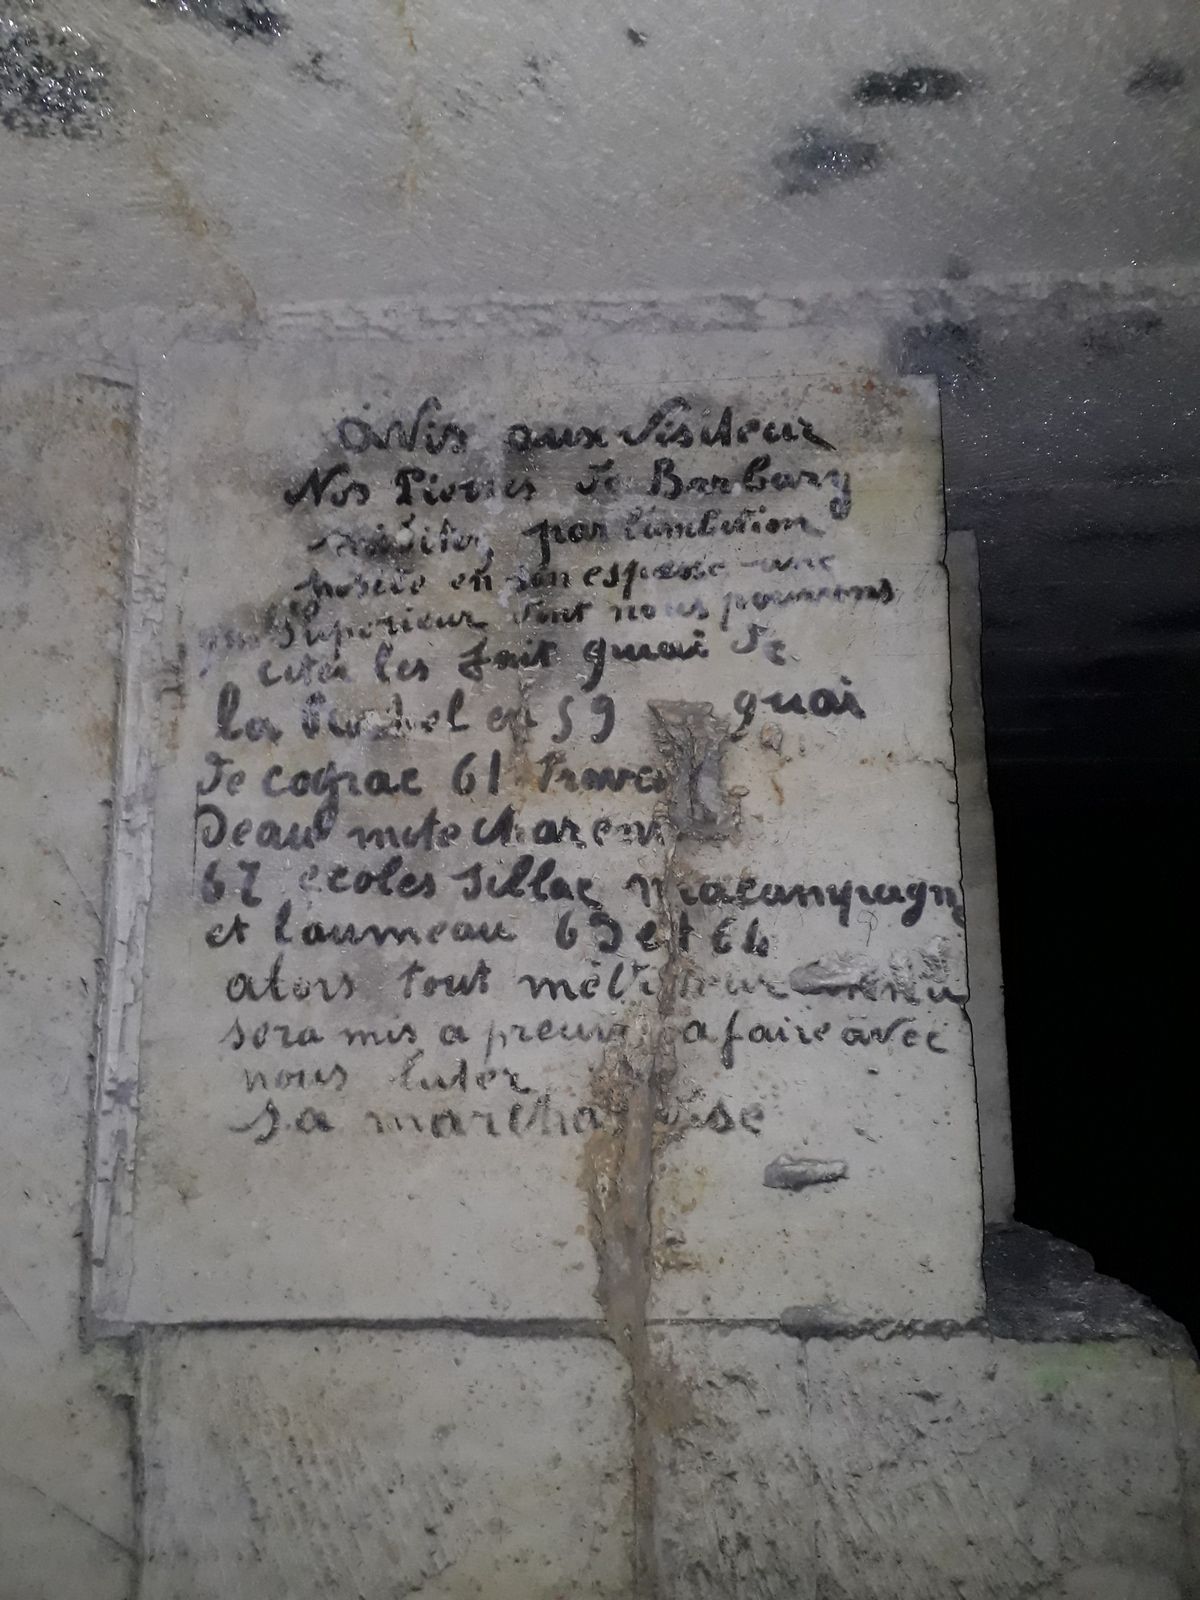 avis aux visiteur
Nos Pierres de Barbary
par l'ambition
en son espese une
Superieur dont nous pouvons
citer les fait quai de
la Rochel en 59 quai
de cognac 61
Deau mote charen
67 écoles Sillac macampagn
et laumeau 63 et 64
alors tout
sera mis a preuv a faire avec
nous luter
sa marcha